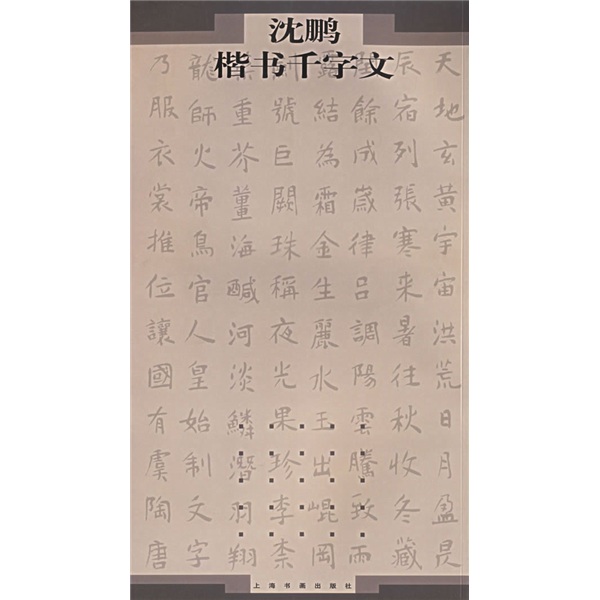 沈鹏
楷书千字文
天地玄黃宇宙洪荒日月盈昃
辰宿列張寒来暑往秋收冬藏
餘成歲律吕調陽雲騰致雨
露結為霜金生麗水玉出崐岡
號巨闕珠稱夜光果珍李柰
重芥薑海醎河淡鱗潛羽翔
龍師火帝鳥官人皇始制文字
乃服衣裳推位讓國有虞陶唐
上海书画出版社